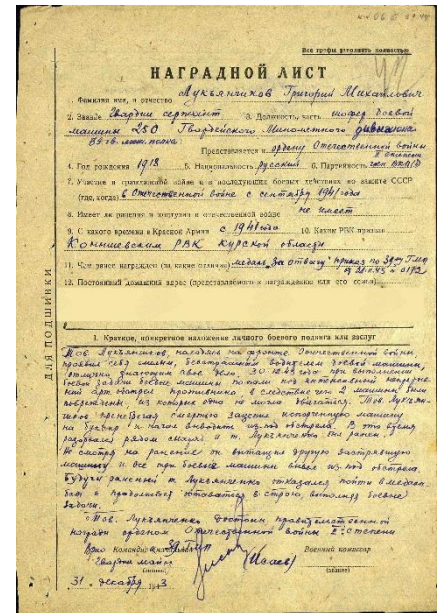 Все графы заполнять полностью
НАГРАДНОЙ ЛИСТ
1. Фамилия имя, и отчество Лукьянчиков Григорий Михайлович
2. Звание Гвардии сержант 3. Должность, часть шофер боевой
машины 250 Гвардейского Минометного дивизиона
Представляется к ордену Отечественной войны
II степени
4. Год рождения 1918 5. Национальность русский 6. Партийность член ВКП(б)
7. Участие в гражданской войне и в последующих боевых действиях по защите СССР
(где, когда) в Отечественной войне с сентября 1941 года
8. Имеет ли ранения и контузии в отечественной войне не имеет
9. С какого времени в Красной Армии с 1941 года 10. Каким РВК призван
Конышевским РВК Курской области
11. Чем ранее награжден (за какие отличия) медаль "За отвагу" приказ по
12. Постоянный домашний адрес (представляемого к награждению или его семьи)
ДЛЯ ПОДШИВКИ
1. Краткое, конкретное изложение личного боевого подвига или заслуг
Тов. Лукьянчиков, находясь на фронте Отечественной войны,
проявил себя смелым, бесстрашным водителем боевой машины,
отлично знающим свое дело. 30.12.43 года при выполнении
боевой задачи боевые машины попали под интенсивный
арт. обстрел противника в следствие чего машины были
повреждены, из которых одна не могла двигаться. Тов. Лукьян-
чиков презирая смерть зацепил испорченную машину
на буксир и начал вывозить из под обстрела. В это время
разорвался рядом снаряд и т. Лукьянченко был ранен.
Не смотря на ранение он вытащил другую застрявшую
машину и все три боевые машины вывел из под обстрела.
Будучи раненый т. Лукьянченко отказался пойти в
и продолжает оставаться в строю, выполняя боевые
задачи.
Тов. Лукьянченко достоин правительственной
награды орденом Отечественной войны 2й степени
Врио Командир
Гвардии майор
(Исаев)
Военный комиссар
(звание)
31. декабря 1943